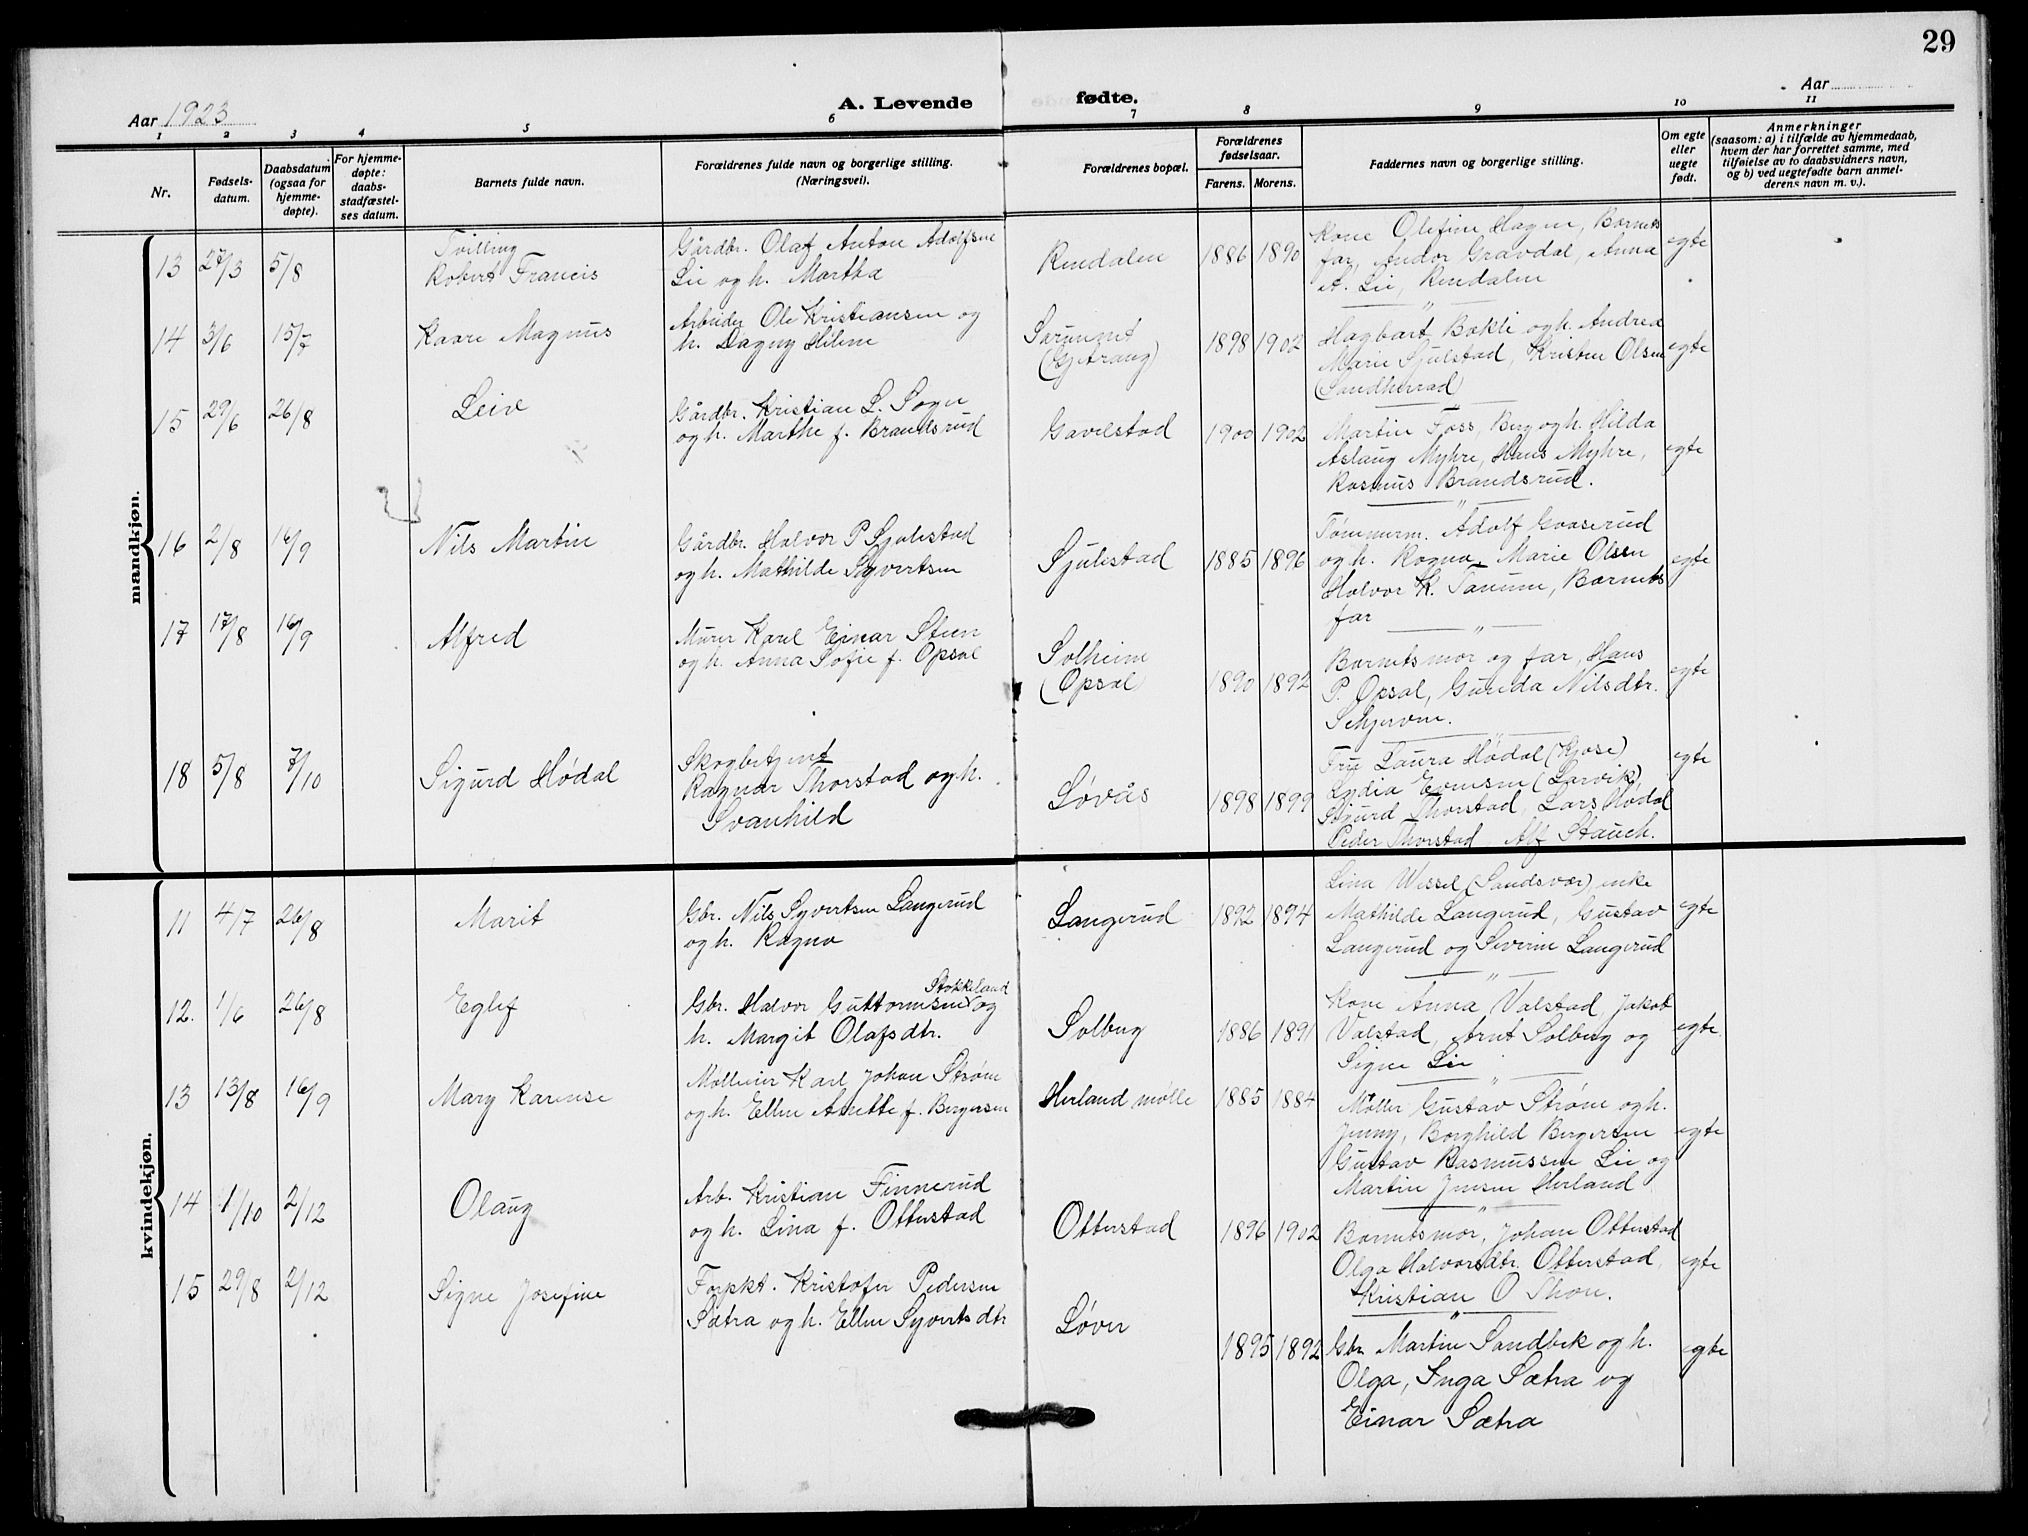 29
A. Levende fødte.
Aar 1923
Aar
1 2 3 4 5 6 7 8 9 10 11
Nr.
Fødsels-
datum.
Daabsdatum
(ogsaa for
hjemme-
døpte).
For hjemme-
døpte:
daabs-
stadfæstel-
ses datum.
Barnets fulde navn.
Forældrenes fulde navn og borgerlige stilling.
(Næringsvei).
Forældrenes bopæl.
Forældrenes
fødselsaar.
Farens. Morens.
Faddernes navn og borgerlige stilling.
Om egte
eller
uegte
født.
Anmerkninger
(saasom: a) i tilfælde av hjemmedaab,
hvem der har forrettet samme, med
tilføielse av to daabsvidners navn,
og b) ved uegtefødte barn anmel-
derens navn m. v.).
mandkjøn.
13 27/3 5/8
Tvilling
Robert Francis
Gårdbr. Olaf Anton Adolfsne
Lie og h. Martha
Rendalen 1886 1890
Kone Olefine Hagne, Barnets
far, Andor Gravdal, Anna
A. Lie, Rendalen
egte
14 3/6 15/7
Kaare Magnus
Arbeider Ole Kristiansen og
h. Dagny Hilene
(Gjetrang)
1898 1902
Hagbart Bakli og h. Andrea
Marie Sjulstad, Kristen Olsen
(Sandherrad)
egte
15 29/6 26/8
Leiv
Gårdbr. Kristian L. Sogn
og h. Marthe f. Brandsrud
Gavelstad 1900 1902
Martin Foss, Berg og h. Hilda
Aslaug Myhre, Hans Myhre,
Rasmus Brandsrud.
egte
16 2/8 16/9
Nils Martin
Gårdbr. Halvor P Sjulestad
og h. Mathilde Syvertsen
Sjulestad 1885 1896
Tømmerm. Adolf Gaaserud
og h. Ragna, Marie Olsen
Halvor K. Tanum, Barnets
far
egte
17 17/8 16/9
Alfred
Murer Karl Einar Steen
og h. Anna Sofie f. Opsal
Solheim
(Opsal)
1890 1892
Barnets mor og far, Hans
P. Opsal, Gunda Nilsdtr.
Schjerven.
egte
18 5/8 7/10
Sigurd Hødal
Skogbetjent
Ragnar Thorstad og h.
Svanhild
Løvås 1898 1899
Fru Laura Hødal (Kjose)
Lydia Evensen (Larvik),
Sigurd Thorstad, Lars Hødal
Peder Thorstad Alf Stauch.
egte
kvindekjøn.
11 4/7 26/8
Marit
Gbr. Nils Syvertsen Langerud
og h. Ragna
Langerud 1892 1894
Lina Wessel (Sandsvær), enke
Mathilde Langerud, Gustav
Langerud og Severin Langerud
egte
12. 1/6 26/8
Eglef
Stokkeland
Gbr. Halvor Guttormsen og
h. Margit Olafsdtr.
Solberg 1886 1891
Kone Anna Valstad, Jakob
Valstad, Arnt Solberg og
Signe Lie
egte
13 13/8 16/9
Mary Karense
Mølleier Karl Johan Strøm
og h. Ellen Anette f. Bergersen
Herland mølle 1885 1884
Møller Gustav Strøm og h.
Jenny, Borghild Bergersen
Gustav Rasmussen Lie og
Martin Jensen Herland
egte
14 1/10 2/12
Olaug
Arb. Kristian Finnerud
og h. Lina f. Otterstad
Otterstad 1896 1902
Barnets mor, Johan Otterstad
Olga Halvorsdtr. Otterstad,
Kristian O Thon.
egte
15 29/8 2/12
Signe Josefine
Forpkt. Kristofer Pedersen
Sætra og h. Ellen Syvertsdtr
Løver 1895 1892
Gbr. Martin Sandbek og h.
Olga, Inga Sætra og
Einar Sætra
egte